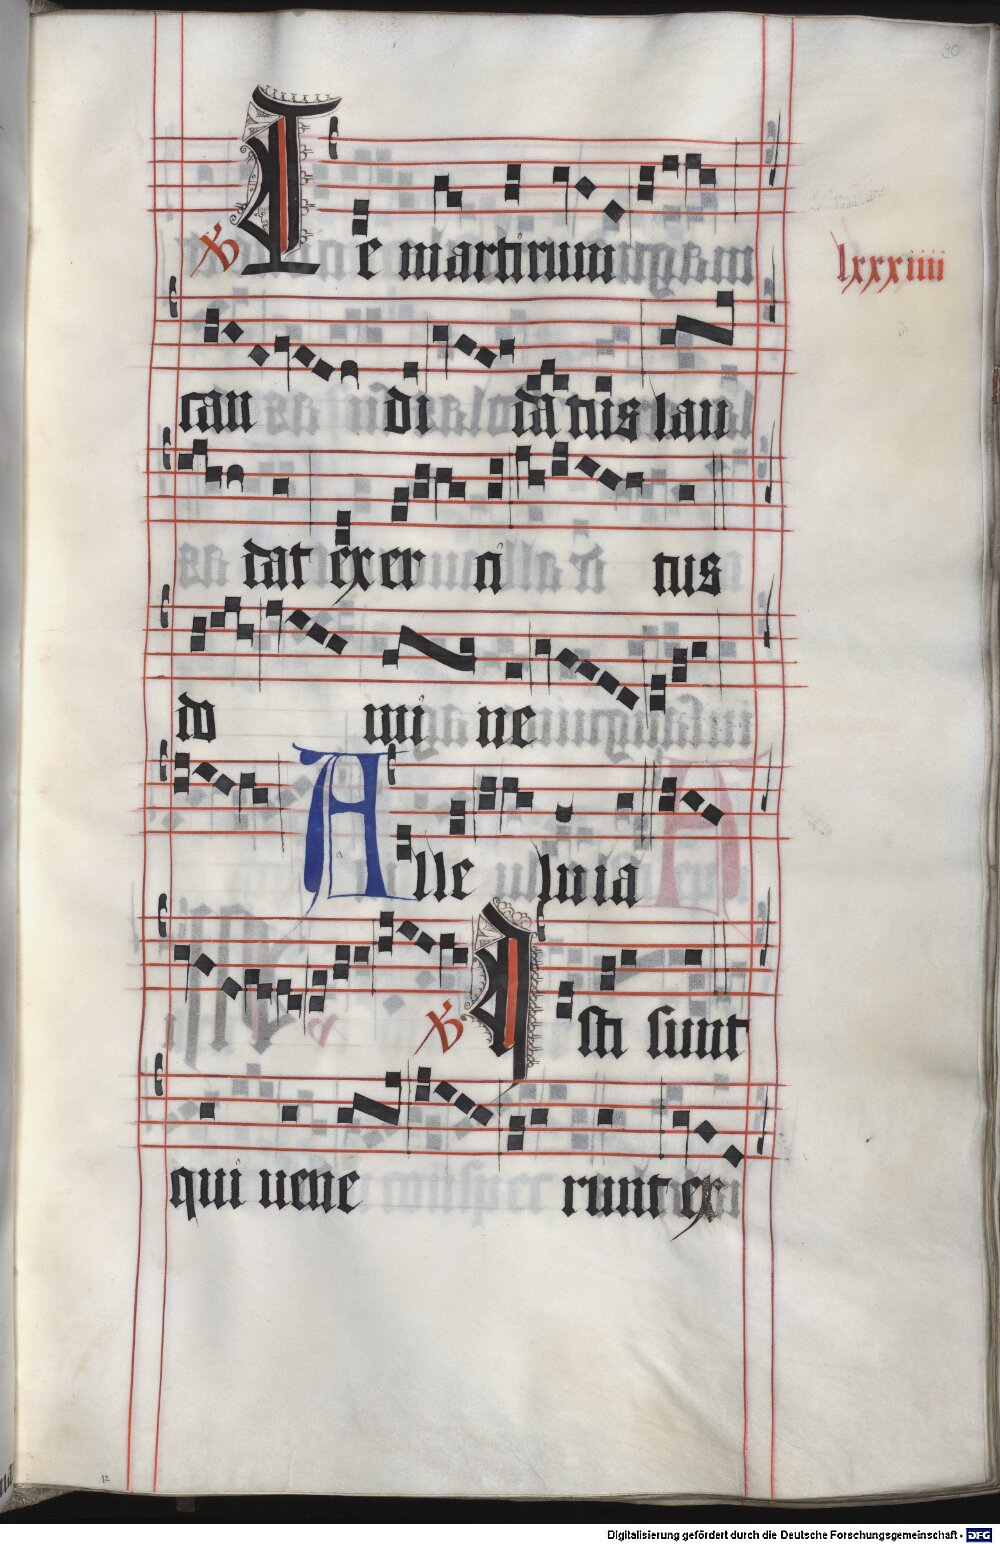 90
℣ Te martirum
lxxxiiii
can di datus lau
dat exer ci tus
do mi ne
Alle luia
℣ Isti sunt
qui uene runt ex
12
Digitalisierung gefördert durch die Deutsche Forschungsgemeinschaft - DFG